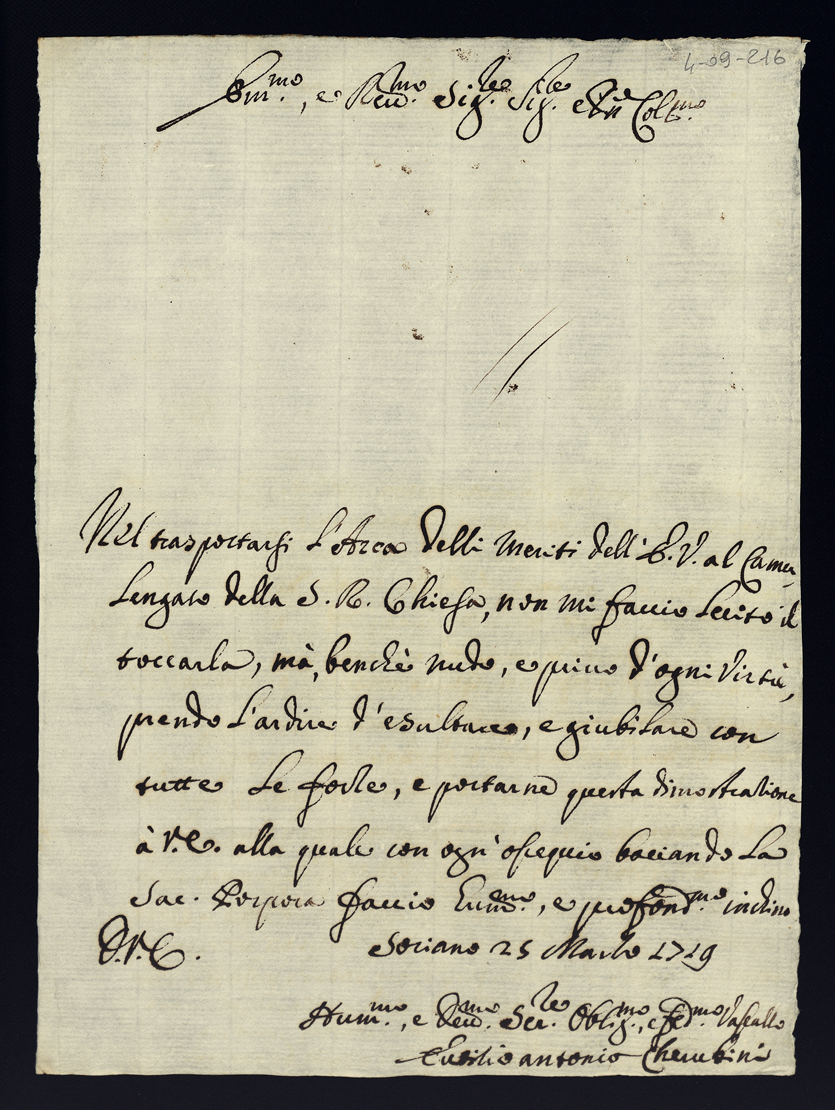 4-09-216
Em.mo, e Reu.mo Sig.re Sig.re e Pn̄e Col.mo
Nel trasportarsi l'Arca delli Meriti dell'E.V. al Camer,
lengato della S. R. Chiesa, non mi faccio lecito il
toccarla, mà, benchè nudo, e priuo d'ogni Virtù,
prendo l'ardire d'esultare, e giubilare con
tutte le forze, e portarne questa dimostratione
à V.E. alla quale con ogn'ossequio baciando la
Sac. Porpora faccio Hum.mo, e profond.mo inchino
D.V.E.
Soriano 25 Marzo 1719
Hum.mo, e Deu.mo Ser.re Oblig.mo, e fed.mo Vassallo
antonio Cherubini